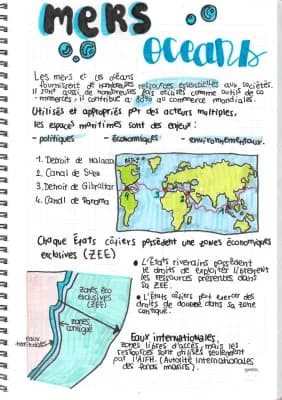 MERS
OCEANS
Les mers et les océans
fournissent de nombreuses ressources essentielles aux sociétés.
Il sont aussi de nombreuses fois utilisés comme outils de co
-mmerces, il contribue à 80% au commerce mondiales.
Utilisés et appropriés par des acteurs multiples,
les espaces maritimes sont des enjeux:
- politiques - économiques - environnementaux.
1. Detroit de Malacca
2. Canal de Suez
3. Detroit de Gibraltar
4. Canal de Panama
Chaque États côtiers possèdent une zones économiques
exclusives (ZEE)
• L'États riverains possèdent
le droits de exploiter librement
les ressources présentes dans
sa ZEE.
• L'États côtiers peut exercer des
droits de douane dans sa zone
contiguë.
zones éco
exclusives
(ZEE)
zones
contiguë
eaux
territoriales
Eaux internationales,
zones libres d'accès mais les
ressources sont utilisés seulement
par l'AIFM. (Autorité Internationales
des fonds marins).